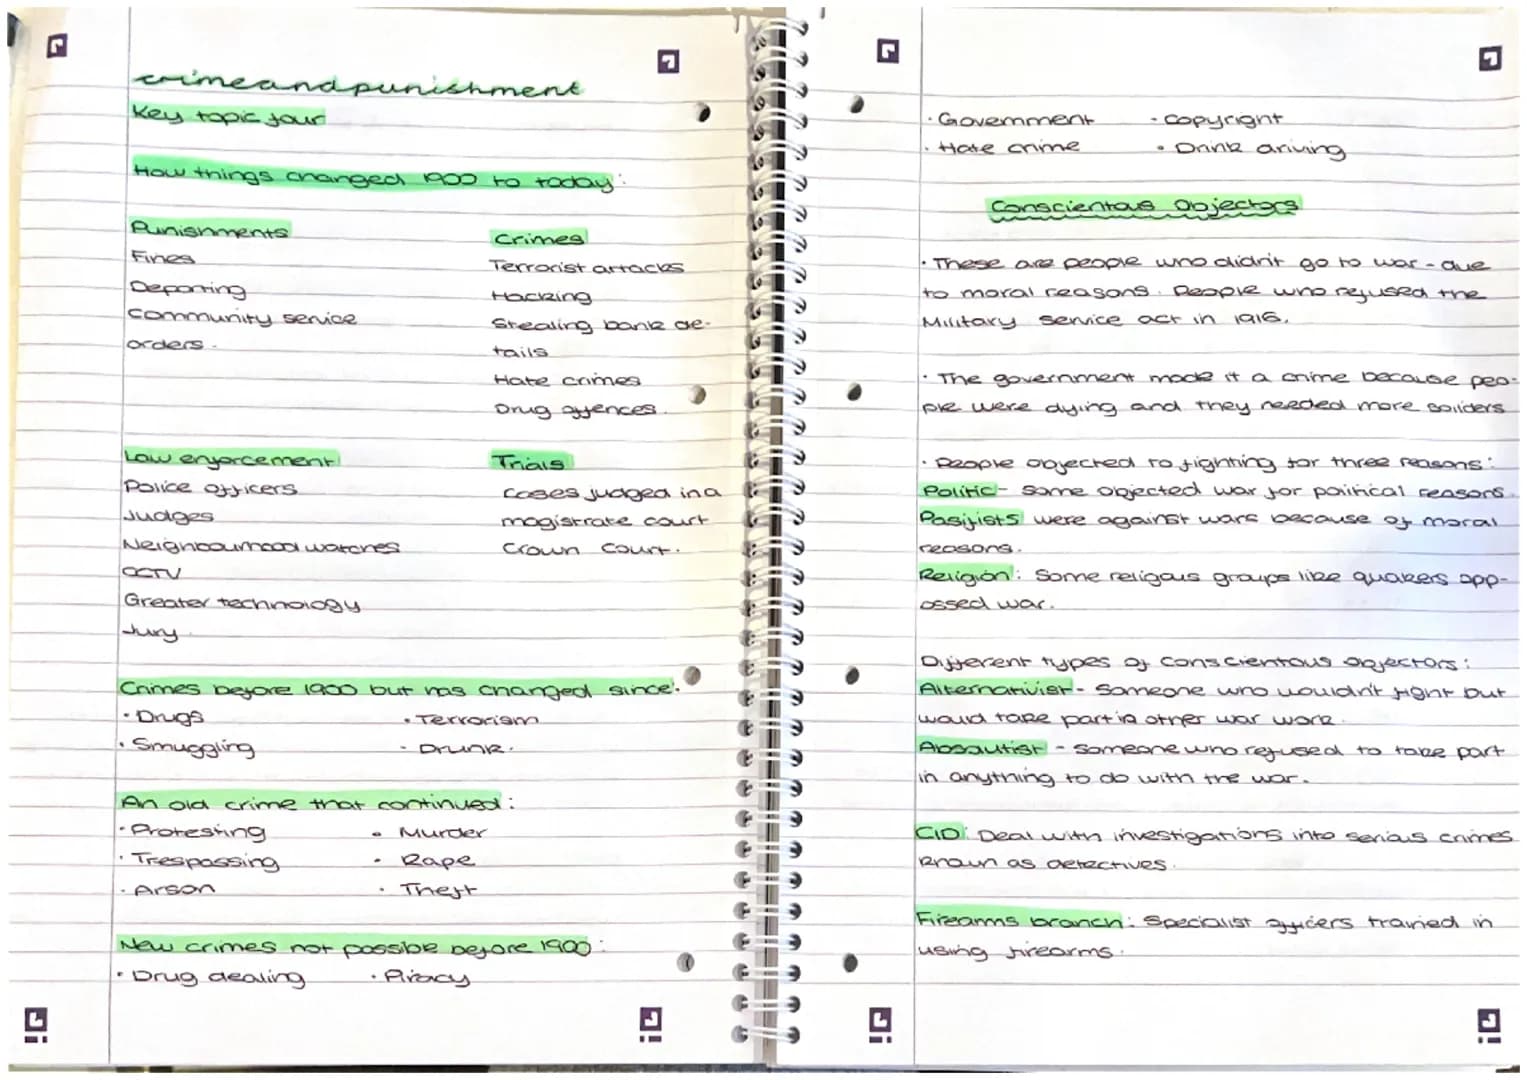 crimeandpunishment
Key topic four
How things changed 1900 to today:
Punishments
Fines
Deporting
Community service
orders.
Crimes
Terrorist attacks
Hacking
Stealing bank de-
tails
Hate crimes
Drug offences.
Law enforcement
Police officers
Judges
Neighbourhood watches
CCTV
Greater technology
Jury.
Trials
cases judged in a
magistrate court
Crown court.
Crimes before 1900 but has changed since:
· Drugs
· Smuggling
· Terrorism
· Drunk.
An old crime that continued:
· Protesting
· Trespassing
· Arson
· Murder
· Rape
· Theft
New crimes not possible before 1900:
· Drug dealing
· Piracy
· Government
· Hate crime
· copyright
· Drink driving
Conscientous Objectors
· These are people who didn't go to war - due
to moral reasons. People who refused the
Military service act in 1916.
· The government made it a crime because peo-
ple were dying and they needed more soilders
· People objected to fighting for three reasons:
Politic - some objected war for political reasons.
Pasifists were against wars because of moral
reasons.
Religion: Some religous groups like quakers opp-
ossed war.
Different types of conscientous objectors:
Alternativist - Someone who wouldn't fight but
would take part in other war work.
Absoutist - Someone who refused to take part
in anything to do with the war.
CID: Deal with investigations into serious crimes
known as detectives.
Firearms branch: Specialist officers trained in
using firearms.